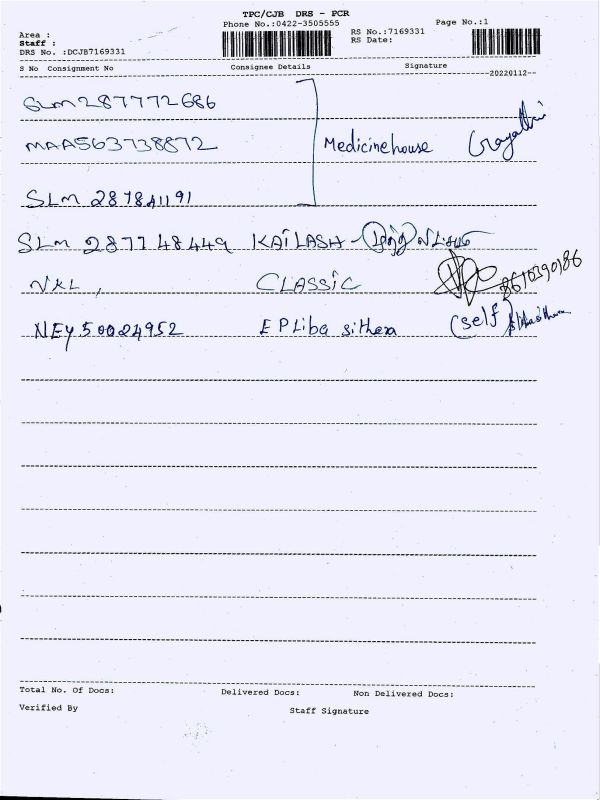 TPC/CJB DRS - PCR
Phone No.:0422-3505555
Page No.:1
Area :
Staff :
DRS No. :DCJB7169331
RS No.:7169331
RS Date:
S No Consignment No Consignee Details Signature
20220112--
SLM287772686
MAA563738872 Medicinehouse Gayathri
SLM 287841191
SLM 287748449 KAILASH -
NKL, CLASSIC 8610390186
NEY50024952 E P Liba sithera (self)
Total No. Of Docs: Delivered Docs: Non Delivered Docs:
Verified By Staff Signature